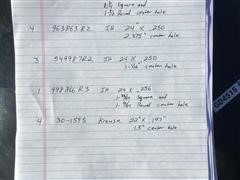 1½ Square and
1-½ Round center hole
4 963863 R2 IH 24" X .250
2.375" center hole
3 549987R2 IH 24 X .250
center hole
1 998266 R3 IH 24 X .236
Square and
Round center hole
4 30-1595 Krause 22" X .197"
1.5" center hole